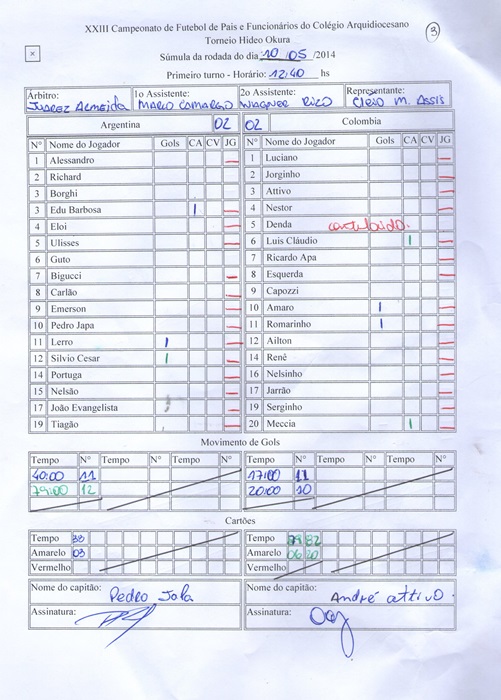 XXIII Campeonato de Futebol de Pais e Funcionários do Colégio Arquidiocesano
Torneio Hideo Okura
3
x
Súmula da rodada do dia 10 / 05 /2014
Primeiro turno - Horário: 12:40 hs
Árbitro: 1o Assistente: 2o Assistente: Representante:
Juarez Almeida Mario Camargo Wagner Rizo Clesio M. Assis
Argentina 02 02 Colombia
Nº Nome do Jogador Gols CA CV JG Nº Nome do Jogador Gols CA CV JG
1 Alessandro 1 Luciano
2 Richard 2 Jorginho
3 Borghi 3 Attivo
3 Edu Barbosa 4 Nestor
4 Eloi 5 Denda
5 Ulisses 6 Luis Cláudio
6 Guto 7 Ricardo Apa
7 Bigucci 8 Esquerda
8 Carlão 9 Capozzi
9 Emerson 10 Amaro
10 Pedro Japa 11 Romarinho
11 Lerro 12 Ailton
12 Silvio Cesar 14 Renê
14 Portuga 16 Nelsinho
15 Nelsão 17 Jarrão
17 João Evangelista 19 Serginho
19 Tiagão 20 Meccia
Movimento de Gols
Tempo Nº Tempo Nº Tempo Nº Tempo Nº Tempo Nº Tempo Nº
40:00 11 17:00 11
79:00 12 20:00 10
Cartões
Tempo 38 Tempo 79 82
Amarelo 03 Amarelo 06 20
Vermelho Vermelho
Nome do capitão: Pedro Nome do capitão: André attivo
Assinatura: Assinatura: